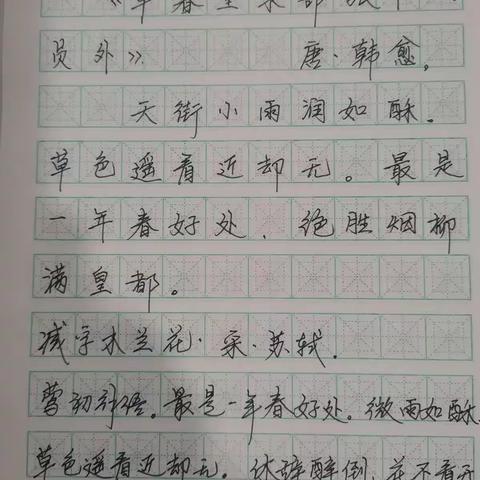 《早春呈水部张十八
员外》 唐·韩愈,
天街小雨润如酥.
草色遥看近却无。最是
一年春好处,绝胜烟柳
满皇都。
减字木兰花·宋·苏轼.
莺初解语。最是一年春好处。微雨如酥
草色遥看近却无。休辞醉倒,花不看开